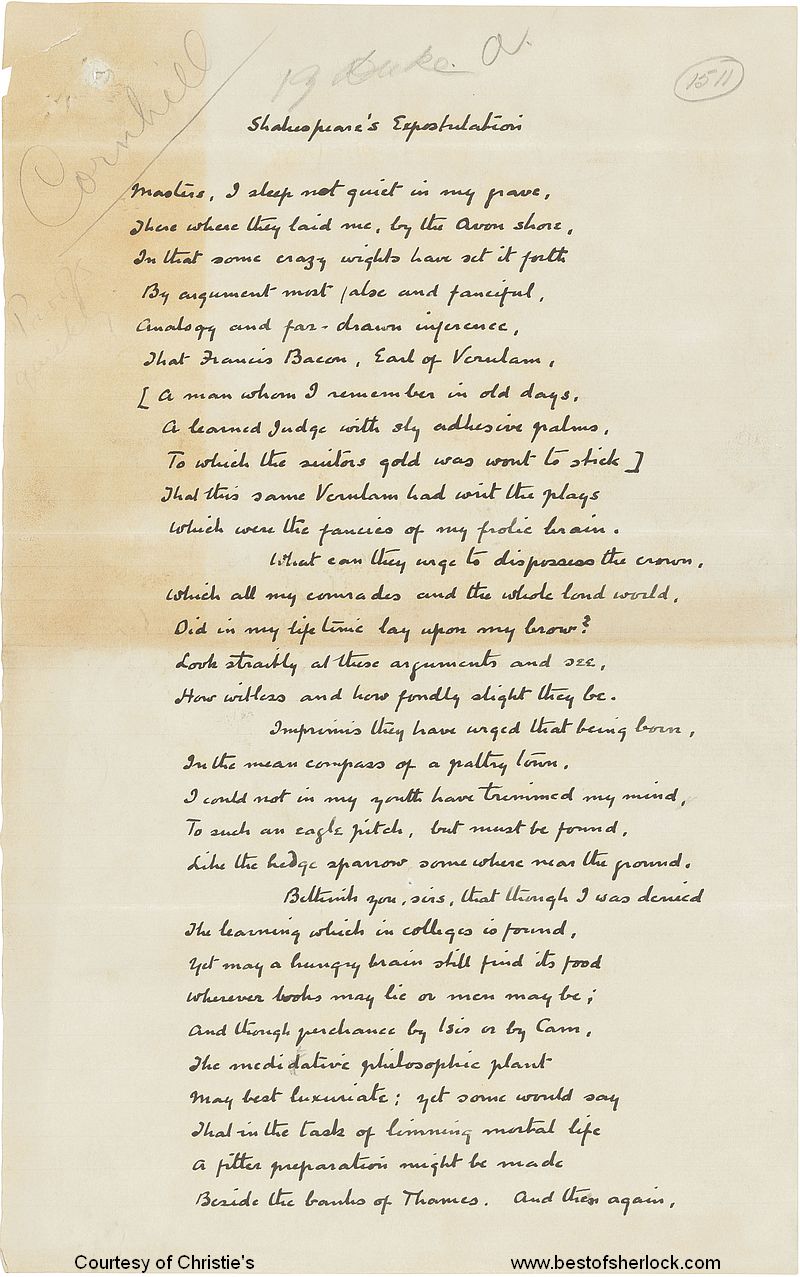 Cornhill
19 Duke. a.
1511
Shakespeare's Expostulation
Masters, I sleep not quiet in my grave,
There where they laid me, by the Avon shore,
In that some crazy wights have set it forth
By argument most false and fanciful,
Analogy and far-drawn inference,
That Francis Bacon, Earl of Verulam,
[ A man whom I remember in old days,
A learned Judge with sly adhesive palms,
To which the suitors gold was wont to stick ]
That this same Verulam had writ the plays
Which were the fancies of my frolic brain.
What can they urge to dispossess the crown,
Which all my comrades and the whole loud world,
Did in my lifetime lay upon my brow?
Look straitly at these arguments and see,
How witless and how fondly slight they be.
Imprimis they have urged that being born,
In the mean compass of a paltry town,
I could not in my youth have trimmed my mind,
To such an eagle pitch, but must be found,
Like the hedge sparrow somewhere near the ground.
Bethink you, sirs, that though I was denied
The learning which in colleges is found,
Yet may a hungry brain still find its food
Wherever books may lie or men may be;
And though perchance by Isis or by Cam,
The meditative philosophic plant
May best luxuriate; yet some would say
That in the task of limning mortal life
A fitter preparation might be made
Beside the banks of Thames. And then again,
Courtesy of Christie's
www.bestofsherlock.com